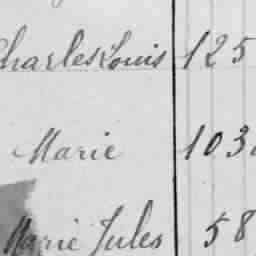 Charles Louis 125
Marie 103
Marie Jules 58